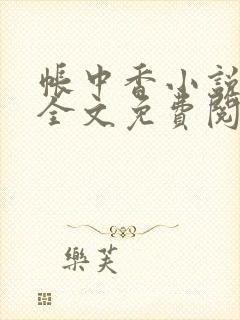 帳中香小說
全文免費閱
樂芙